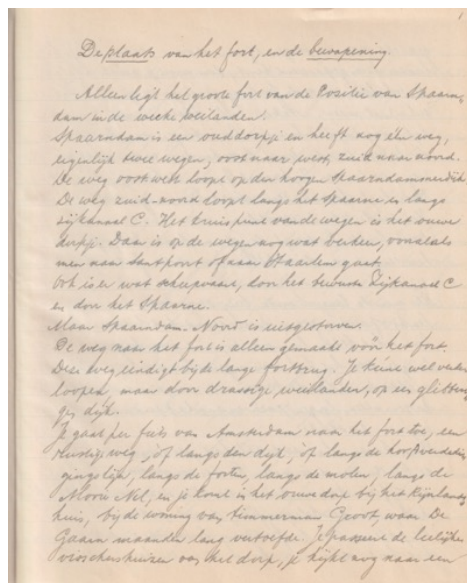 De plaats van het fort, en de bewapening.
Alleen ligt het groote fort van de Positie van Spaarn-
dam in de weeke weilanden.
Spaarndam is een oud dorpje en heeft nog één weg,
eigenlijk twee wegen, oost naar west, zuid naar noord.
De weg oost west loopt op den hoogen Spaarndamschedijk
De weg zuid-noord loopt langs het Spaarne en langs
zijkanaal C. Het kruispunt van de wegen is het ouwe
dorpje. Daar is op de wegen nog wat verkeer, vooral als
men naar Santpoort of naar Haarlem gaat.
Ook is er wat scheepvaart, door het Zijkanaal C
en door het Spaarne.
Maar Spaarndam-Noord is uitgestorven.
De weg naar het fort is alleen gemaakt vóór het fort.
Deze weg eindigt bij de lange fortbrug. Je kùnt wel verder
loopen, maar door drassige weilanden, op een glibberi-
gen dijk.
Je gaat per fiets van Amsterdam naar het fort toe, een
rustige weg, òf langs den dijk, òf langs de hoofdverdedi-
gingslijn, langs de forten, langs de molen, langs de
Mooie Nel, en je komt in het ouwe dorp bij het Rijnlands-
huis, bij de woning van timmerman Groot, waar De
Gaain maanden lang vertoefde. Je passeert de leelijke
visschershuizen van het dorp, je kijkt nog naar een